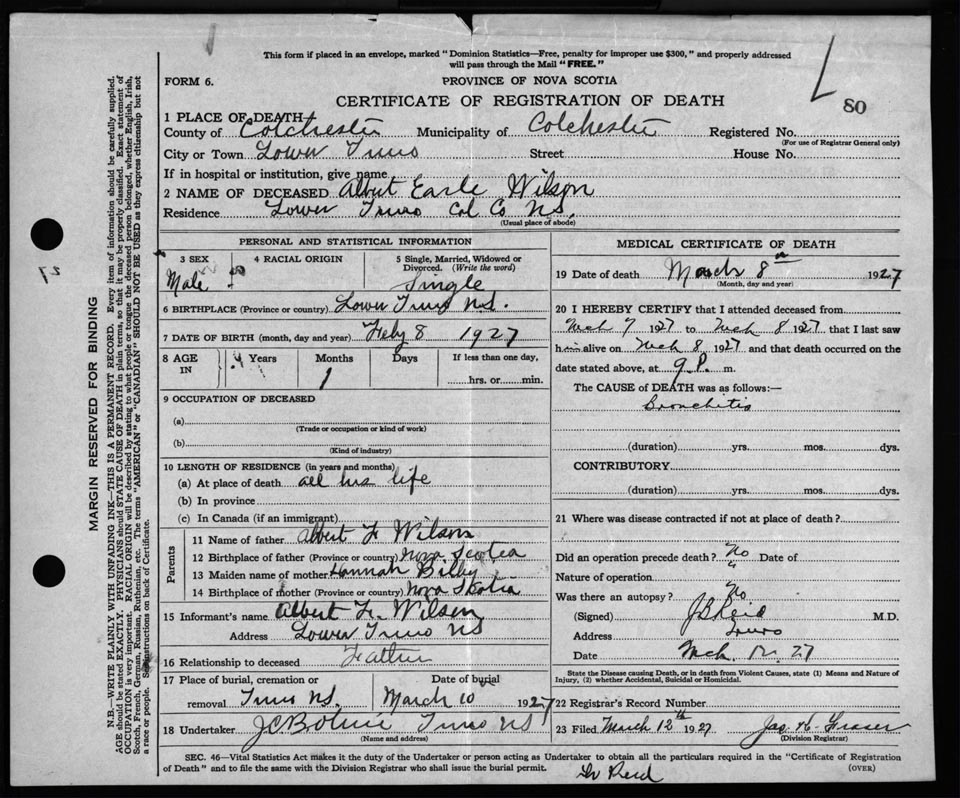 This form if placed in an envelope, marked "Dominion Statistics—Free, penalty for improper use $300," and properly addressed
will pass through the Mail "FREE."
FORM 6.
PROVINCE OF NOVA SCOTIA
CERTIFICATE OF REGISTRATION OF DEATH
80
1 PLACE OF DEATH
County of Colchester Municipality of Colchester Registered No.
(For use of Registrar General only)
City or Town Lower Truro Street House No.
If in hospital or institution, give name
2 NAME OF DECEASED Albert Earle Wilson
Residence Lower Truro Col Co N.S.
(Usual place of abode)
PERSONAL AND STATISTICAL INFORMATION
3 SEX 4 RACIAL ORIGIN 5 Single, Married, Widowed or
Divorced. (Write the word)
Male Single
6 BIRTHPLACE (Province or country) Lower Truro N.S.
7 DATE OF BIRTH (month, day and year) Feby 8 1927
8 AGE IN Years Months Days If less than one day,
1 hrs. or min.
9 OCCUPATION OF DECEASED
(a)
(Trade or occupation or kind of work)
(b)
(Kind of industry)
10 LENGTH OF RESIDENCE (in years and months)
(a) At place of death all his life
(b) In province
(c) In Canada (if an immigrant)
Parents
11 Name of father Albert F. Wilson
12 Birthplace of father (Province or country) Nova Scotia
13 Maiden name of mother Hannah Bilby
14 Birthplace of mother (Province or country) Nova Skotia
15 Informant's name Albert Fr. Wilson
Address Lower Truro NS
16 Relationship to deceased Father
17 Place of burial, cremation or Date of burial
removal Truro N.S. March 10 1927
18 Undertaker Truro N S
(Name and address)
MEDICAL CERTIFICATE OF DEATH
19 Date of death March 8 1927
(Month, day and year)
20 I HEREBY CERTIFY that I attended deceased from
Mch 7 1927 to Mch 8 1927 that I last saw
him alive on Mch 8 1927 and that death occurred on the
date stated above, at 9 P. m.
The CAUSE of DEATH was as follows:—
Bronchitis
(duration) yrs. mos. dys.
CONTRIBUTORY
(duration) yrs. mos. dys.
21 Where was disease contracted if not at place of death?
Did an operation precede death? No Date of
Nature of operation
Was there an autopsy? No
(Signed) J B Reid M.D.
Address Truro
Date Mch. 27
State the Disease causing Death, or in death from Violent Causes, state (1) Means and Nature of
Injury, (2) whether Accidental, Suicidal or Homicidal.
22 Registrar's Record Number
23 Filed March 12th 1927 Jas. Fraser
(Division Registrar)
SEC. 46—Vital Statistics Act makes it the duty of the Undertaker or person acting as Undertaker to obtain all the particulars required in the "Certificate of Registration
of Death" and to file the same with the Division Registrar who shall issue the burial permit. (OVER)
Dr Reid
MARGIN RESERVED FOR BINDING
N.B.—WRITE PLAINLY WITH UNFADING INK—THIS IS A PERMANENT RECORD. Every item of information should be carefully supplied.
AGE should be stated EXACTLY. PHYSICIANS should STATE CAUSE OF DEATH in plain terms, so that it may be properly classified. Exact statement of
OCCUPATION is very important. RACIAL ORIGIN will be described by stating to what people or tongue the deceased person belonged, whether English, Irish,
Scotch, French, German, Russian, Ruthenian, etc. The terms "AMERICAN" or "CANADIAN" SHOULD NOT BE USED as they express citizenship but not
a race or people. See instructions on back of Certificate.
27